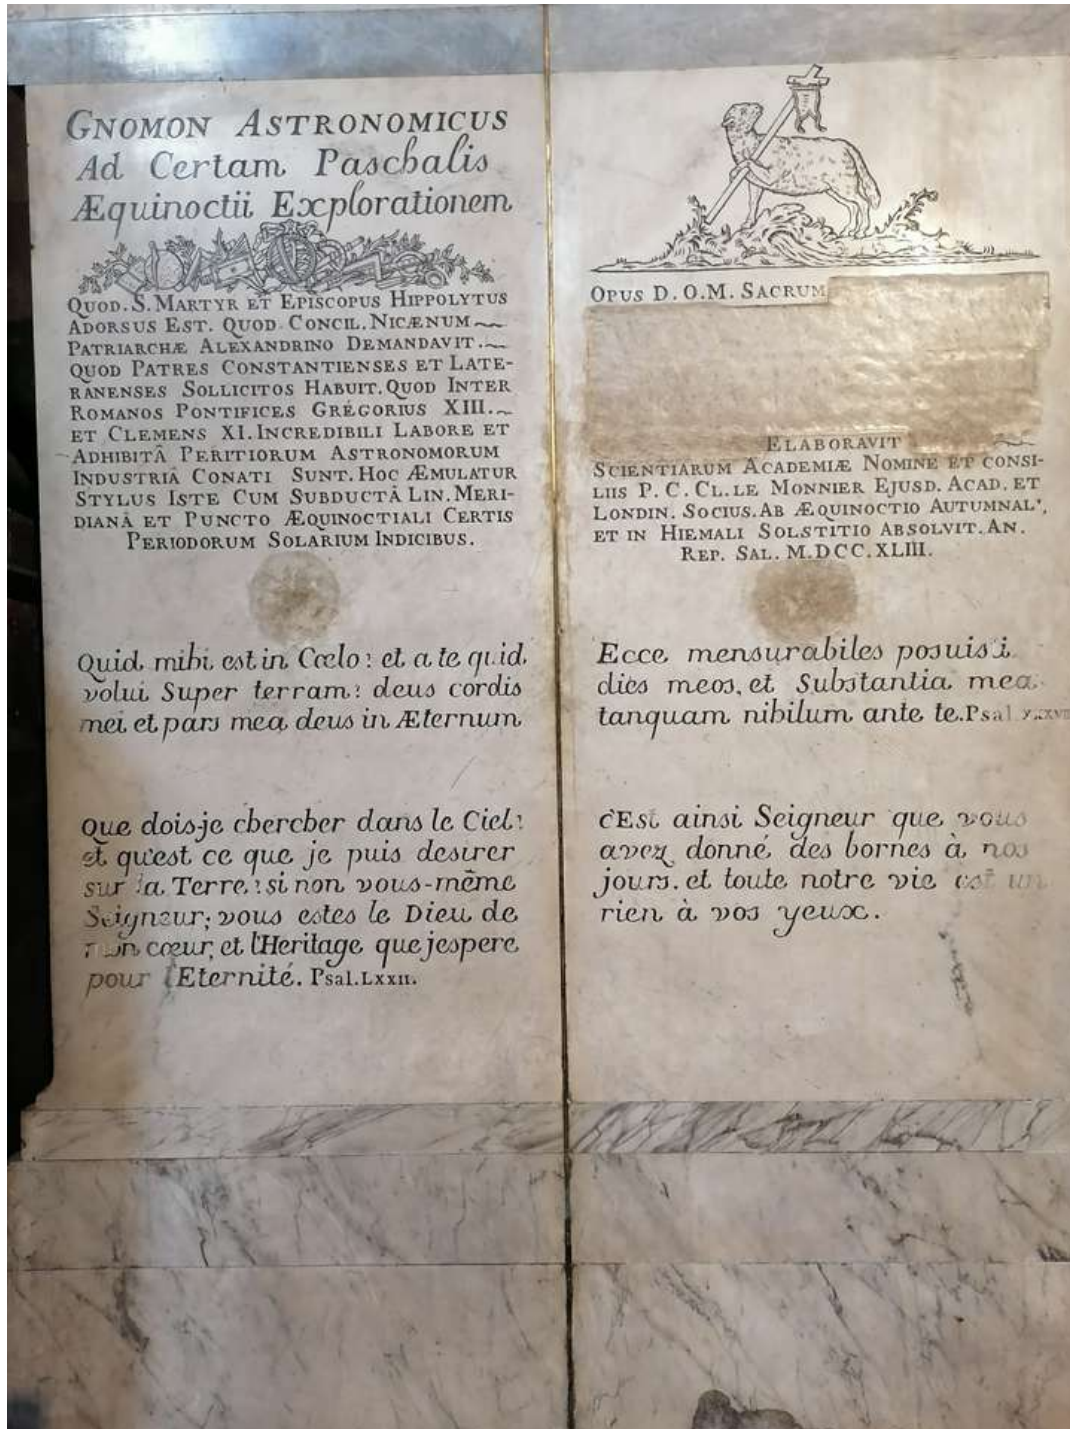 GNOMON ASTRONOMICUS
Ad Certam Paschalis
Æquinoctii Explorationem
QUOD. S. MARTYR ET EPISCOPUS HIPPOLYTUS
ADORSUS EST. QUOD CONCIL. NICÆNUM
PATRIARCHÆ ALEXANDRINO DEMANDAVIT.
QUOD PATRES CONSTANTIENSES ET LATE-
RANENSES SOLLICITOS HABUIT. QUOD INTER
ROMANOS PONTIFICES GRÉGORIUS XIII.
ET CLEMENS XI. INCREDIBILI LABORE ET
ADHIBITÂ PERITIORUM ASTRONOMORUM
INDUSTRIÂ CONATI SUNT. HOC ÆMULATUR
STYLUS ISTE CUM SUBDUCTÂ LIN. MERI-
DIANÂ ET PUNCTO ÆQUINOCTIALI CERTIS
PERIODORUM SOLARIUM INDICIBUS.
Quid mihi est in Cœlo? et a te quid
volui Super terram? deus cordis
mei et pars mea deus in Æternum
Que dois-je chercher dans le Ciel?
et qu'est ce que je puis desirer
sur la Terre? si non vous-même
Seigneur; vous estes le Dieu de
mon cœur, et l'Heritage que jespere
pour l'Eternité. Psal. LXXII.
OPUS D. O. M. SACRUM
ELABORAVIT
SCIENTIARUM ACADEMIÆ NOMINE ET CONSI-
LIIS P. C. CL. LE MONNIER EJUSD. ACAD. ET
LONDIN. SOCIUS. AB ÆQUINOCTIO AUTUMNAL',
ET IN HIEMALI SOLSTITIO ABSOLVIT. AN.
REP. SAL. M.DCC.XLIII.
Ecce mensurabiles posuisti
dies meos, et Substantia mea
tanquam nihilum ante te. Psal.
c'Est ainsi Seigneur que vous
avez donné des bornes à nos
jours. et toute notre vie est un
rien à vos yeux.